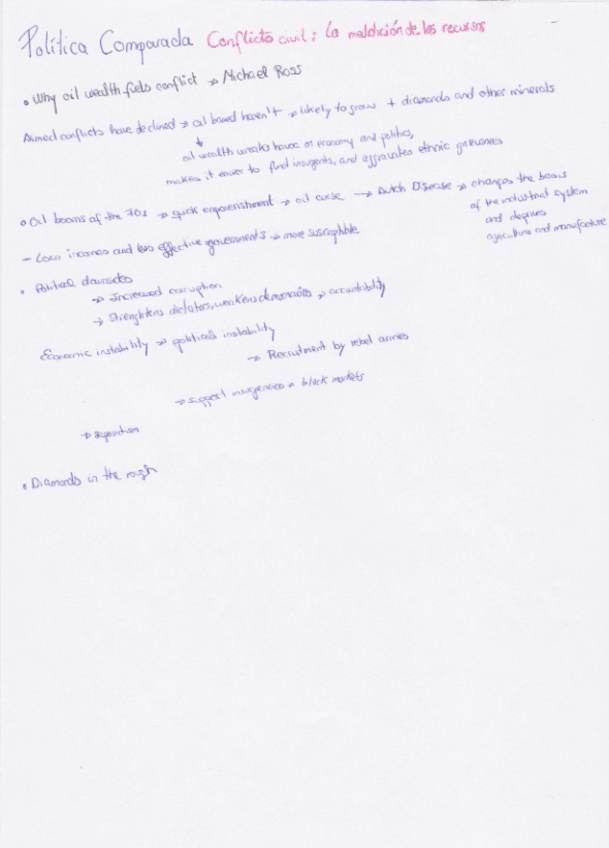 Política Comparada Conflicto civil: La maldición de los recursos
• Why oil wealth fuels conflict → Michael Ross
Armed conflicts have declined → oil based haven't → likely to grow + diamonds and other minerals
↓
oil wealth wreaks havoc on economy and politics,
makes it easier to find insurgents, and aggravates ethnic grievances
• Oil booms of the 70s → quick impoverishment → oil curse → Dutch Disease → changes the basis
of the industrial system
and deprives
agriculture and manufacture
- Low incomes and less effective governments → more susceptible
• Political downsides
→ Increased corruption
→ Strengthens dictators, weakens democracies → accountability
Economic instability → political instability
→ Recruitment by rebel armies
→ support insurgencies black markets
→ separatism
• Diamonds in the rough